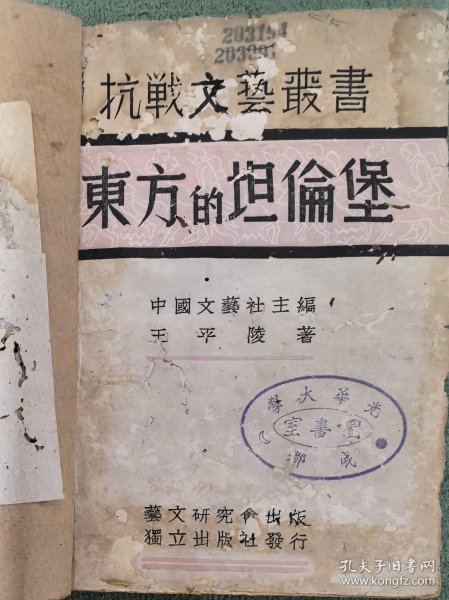 203194
抗戰文藝叢書
東方的坦倫堡
中國文藝社主編
王平陵著
光華大學
圖書室
成都
藝文研究會出版
獨立出版社發行
孔夫子旧书网
kongfz.com